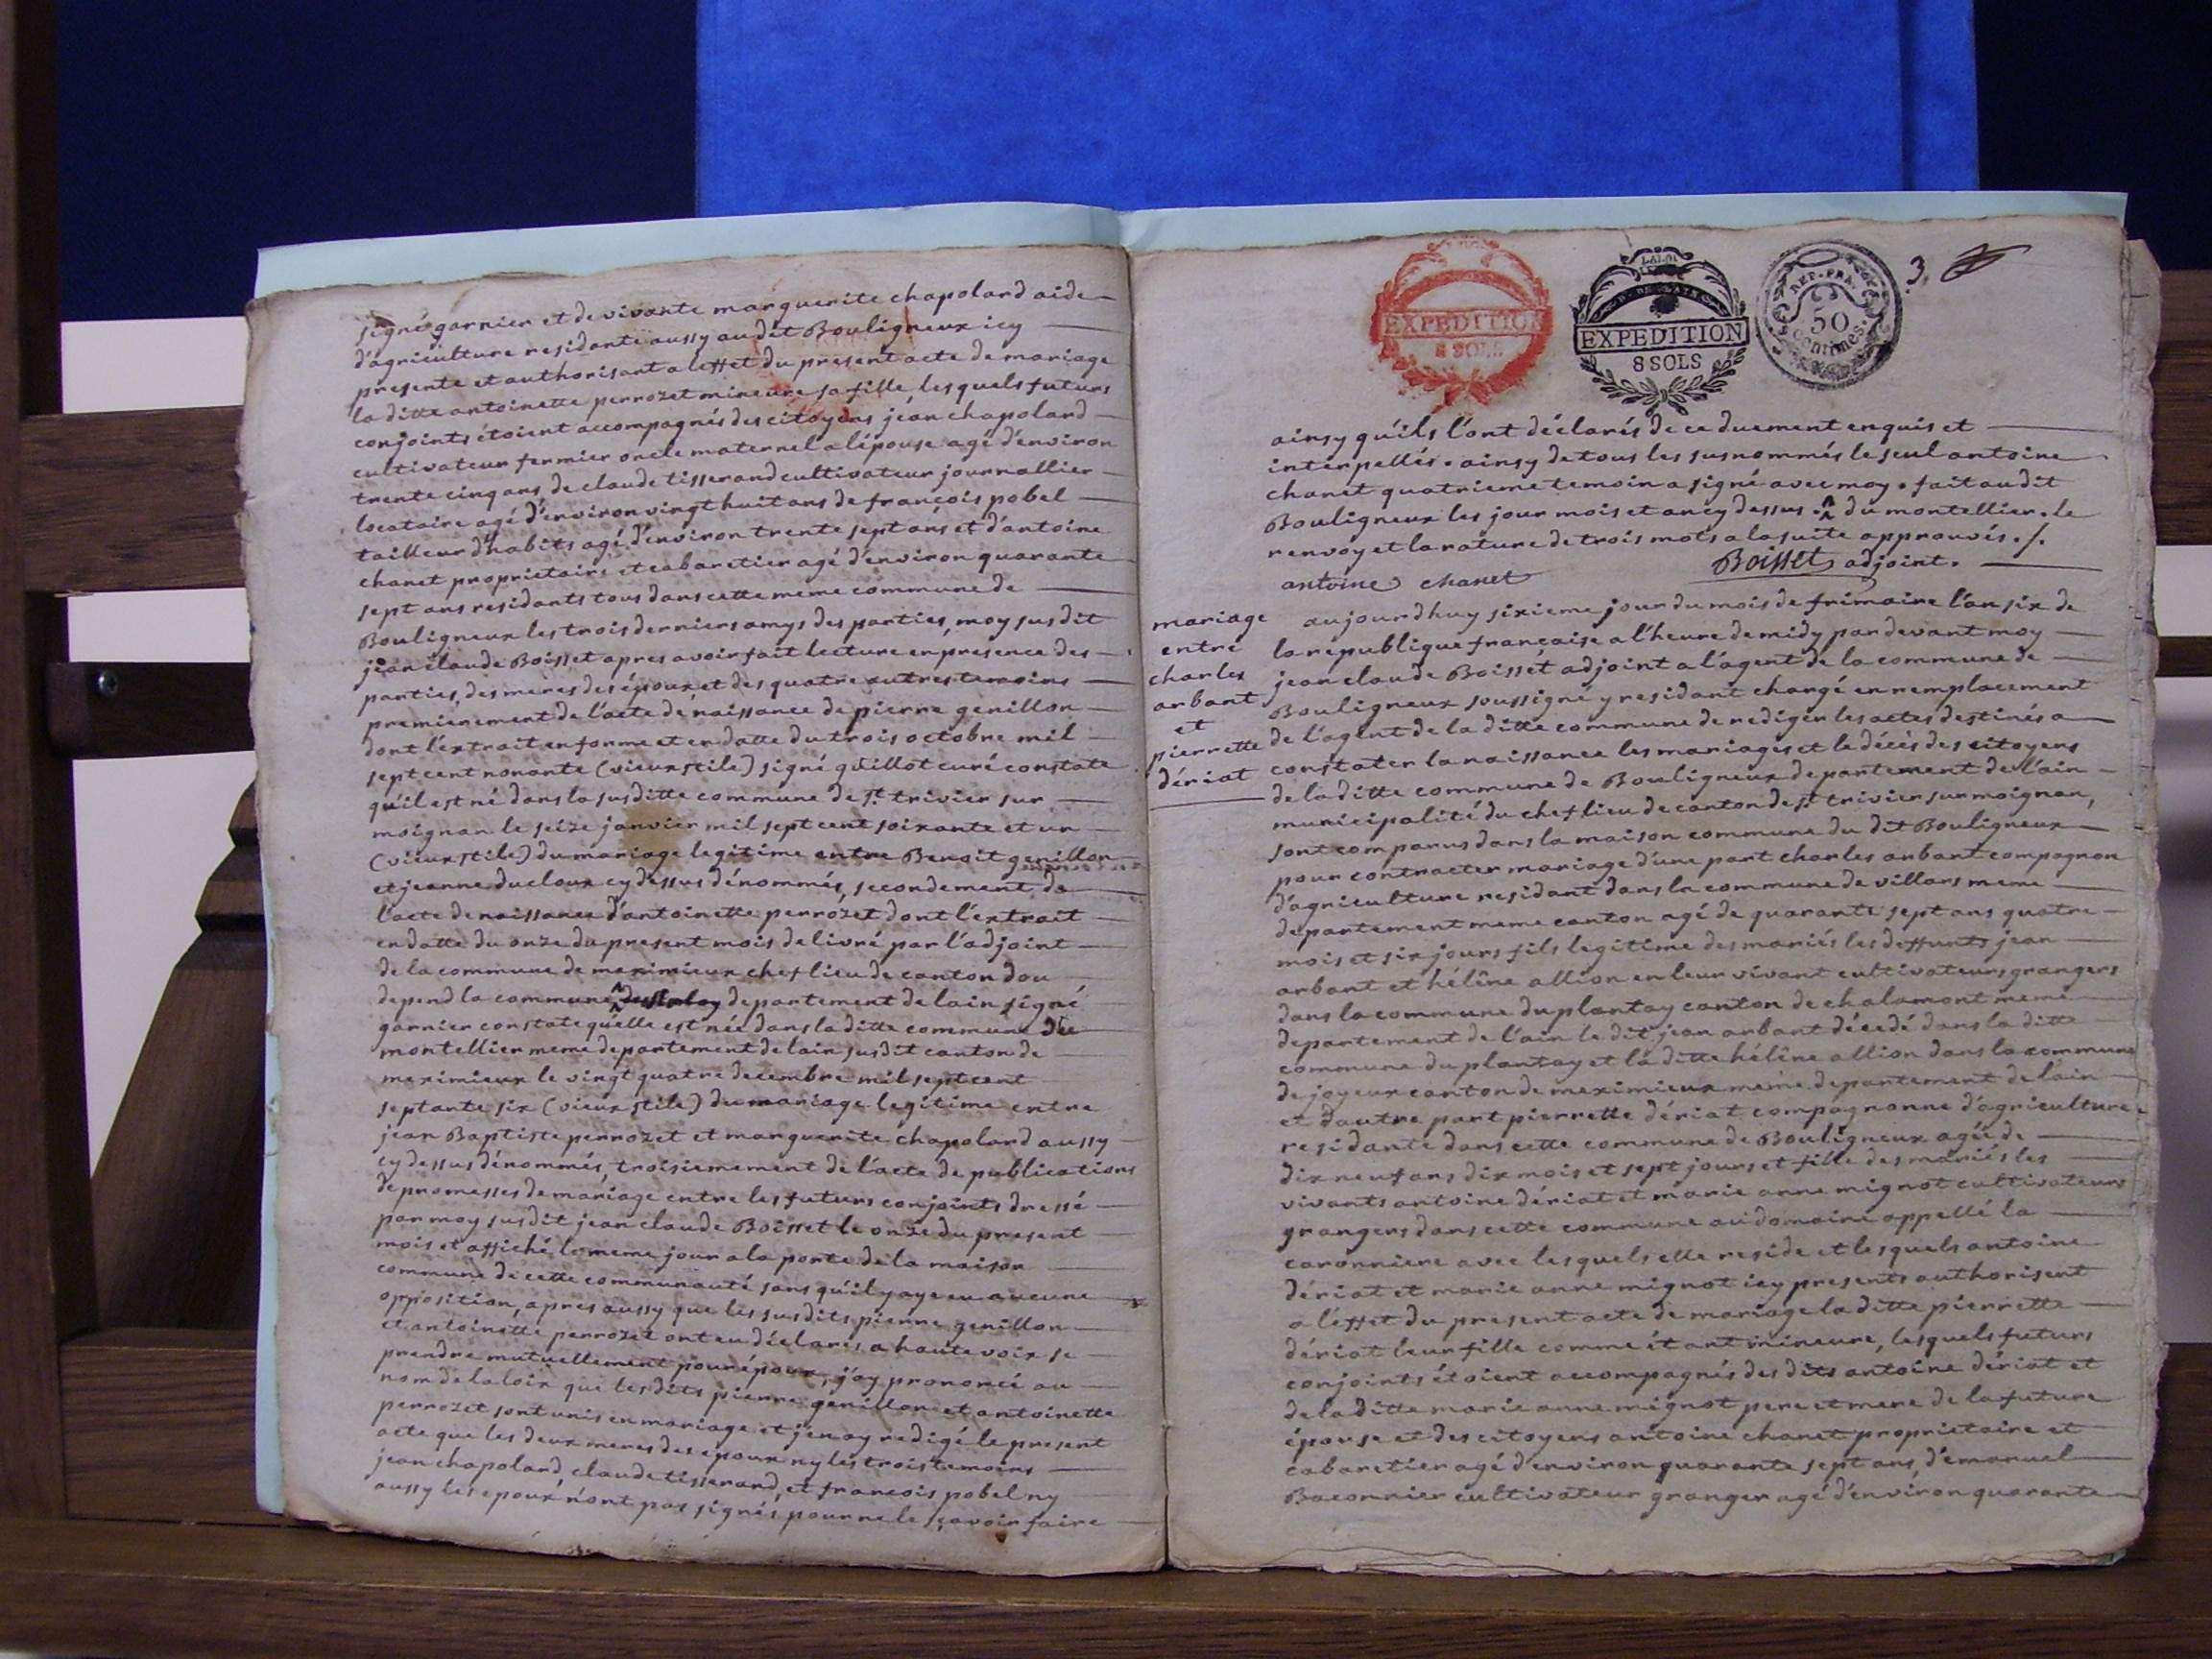 signé garnier et de vivante marguerite chapolard aide
d'agriculture residante aussy au dit Bouligneux icy
presente et authorisant a leffet du present acte de mariage
la ditte antoinette perrozet mineure sa fille, lesquels futurs
conjoints étoient accompagnés des citoyens jean chapolard
cultivateur fermier oncle maternel a lépouse agé d'environ
trente cinq ans, de claude tisserand cultivateur journallier
locataire agé d'environ vingt huit ans de françois pobel
tailleur d'habits agé d'environ trente sept ans et d'antoine
chanet proprietaire et cabaretier agé d'environ quarante
sept ans residants tous dans cette meme commune de
Bouligneux les trois derniers amys des parties, moy susdit
jean claude Boisset apres avoir fait lecture en presence des
parties, des meres des époux, et des quatre autres temoins
premierement de l'acte de naissance de pierre genillon
dont l'extrait en forme et en datte du trois octobre mil
sept cent nonante (vieux stile) signé guillot curé constate
qu'il est né dans la susditte commune de st. trivier sur
moignan le seize janvier mil sept cent soixante et un
(vieux stile) du mariage legitime entre Benoit genillon
et jeanne ducloux cy dessus dénommés, secondement de
l'acte de naissance d'antoinette perrozet dont l'extrait
en datte du onze du present mois delivré par l'adjoint
de la commune de meximieux chef lieu de canton dou
depend la commune departement de lain signé
garnier constate quelle est née dans la ditte commune du
montellier meme departement de lain susdit canton de
meximieux le vingt quatre decembre mil sept cent
septante six (vieux stile) du mariage legitime entre
jean Baptiste perrozet et marguerite chapolard aussy
cy dessus dénommés, troisiemement de l'acte de publications
de promesses de mariage entre les futurs conjoints dressé
par moy susdit jean claude Boisset le onze du present
mois et affiché le meme jour a la porte de la maison
commune de cette communauté sans qu'il y aye eu aucune
opposition, apres aussy que les susdits pierre genillon
et antoinette perrozet ont eu déclarés a haute voix se
prendre mutuellement pour époux, j'ay prononcé au
nom de la loix que lesdits pierre genillon et antoinette
perrozet sont unis en mariage et j'en ay redigé le present
acte que les deux meres des époux ny les trois temoins
jean chapolard, claude tisserand, et francois pobel ny
aussy les epoux n'ont pas signés pour ne le sçavoir faire
EXPEDITION
8 SOLS
LA LOI
EXPEDITION
8 SOLS
REP. FRA.
50
Centimes.
3.
ainsy qu'ils l'ont déclarés de ce duement enquis et
interpellés. ainsy de tous les susnommés le seul antoine
chanet quatrieme temoin a signé avec moy. fait au dit
Bouligneux les jour mois et an cy dessus. du montellier. le
renvoy et la rature de trois mots a la suite approuvés ./.
antoine chanet Boisset adjoint.
mariage
entre
charles
arbant
et
pierrette
dériat
aujourdhuy sixieme jour du mois de frimaire l'an six de
la république française a l'heure de midy par devant moy
jean claude Boisset adjoint a l'agent de la commune de
Bouligneux soussigné y residant chargé en remplacement
de l'agent de la ditte commune de rediger les actes destinés a
constater la naissance les mariages et le décès des citoyens
de la ditte commune de Bouligneux departement de l'ain
municipalité du chef lieu de canton de st trivier sur moignan,
sont comparus dans la maison commune du dit Bouligneux
pour contracter mariage d'une part charles arbant compagnon
d'agriculture residant dans la commune de villars meme
departement meme canton agé de quarante sept ans, quatre
mois et six jours fils legitime des mariés les deffunts jean
arbant et hélêne allion en leur vivant cultivateurs grangers
dans la commune du plantay canton de chalamont meme
departement de l'ain le dit jean arbant décedé dans la ditte
commune du plantay et la ditte hélêne allion dans la commune
de joyeux canton de meximieux meme departement de lain
et d'autre part pierrette dériat compagnonne d'agriculture
residante dans cette commune de Bouligneux agée de
dix neuf ans dix mois et sept jours et fille des mariés les
vivants antoine deriat et marie anne mignot cultivateurs
grangers dans cette commune au domaine appellé la
caronniere avec lesquels elle reside et lesquels antoine
dériat et marie anne mignot icy presents authorisent
a l'effet du present acte de mariage la ditte pierrette
dériat leur fille comme étant mineure, lesquels futurs
conjoints étoient accompagnés des dits antoine dériat et
de la ditte marie anne mignot pere et mere de la future
épouse et des citoyens antoine chanet proprietaire et
cabaretier agé d'environ quarante sept ans, d'émanuel
Baconnier cultivateur granger agé d'environ quarante